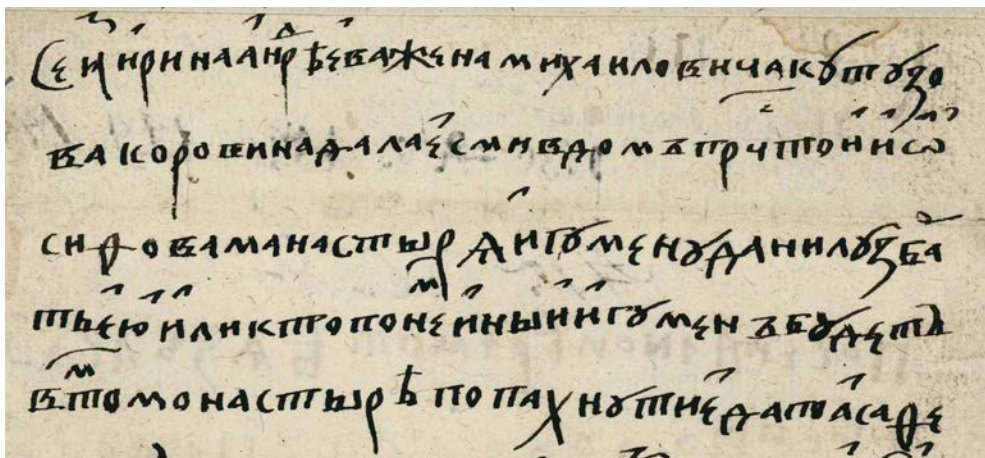 Се ꙗ Ирина Андрѣева жена Михаиловича Кутузо
ва Коровина дала есми в домъ прчтои и Иѡ
сифова манастырѧ игумену Данилу з ба
тьею или кто по нем иныи игуменъ будетъ
в том монастырѣ по пахнутие да поꙗса фе